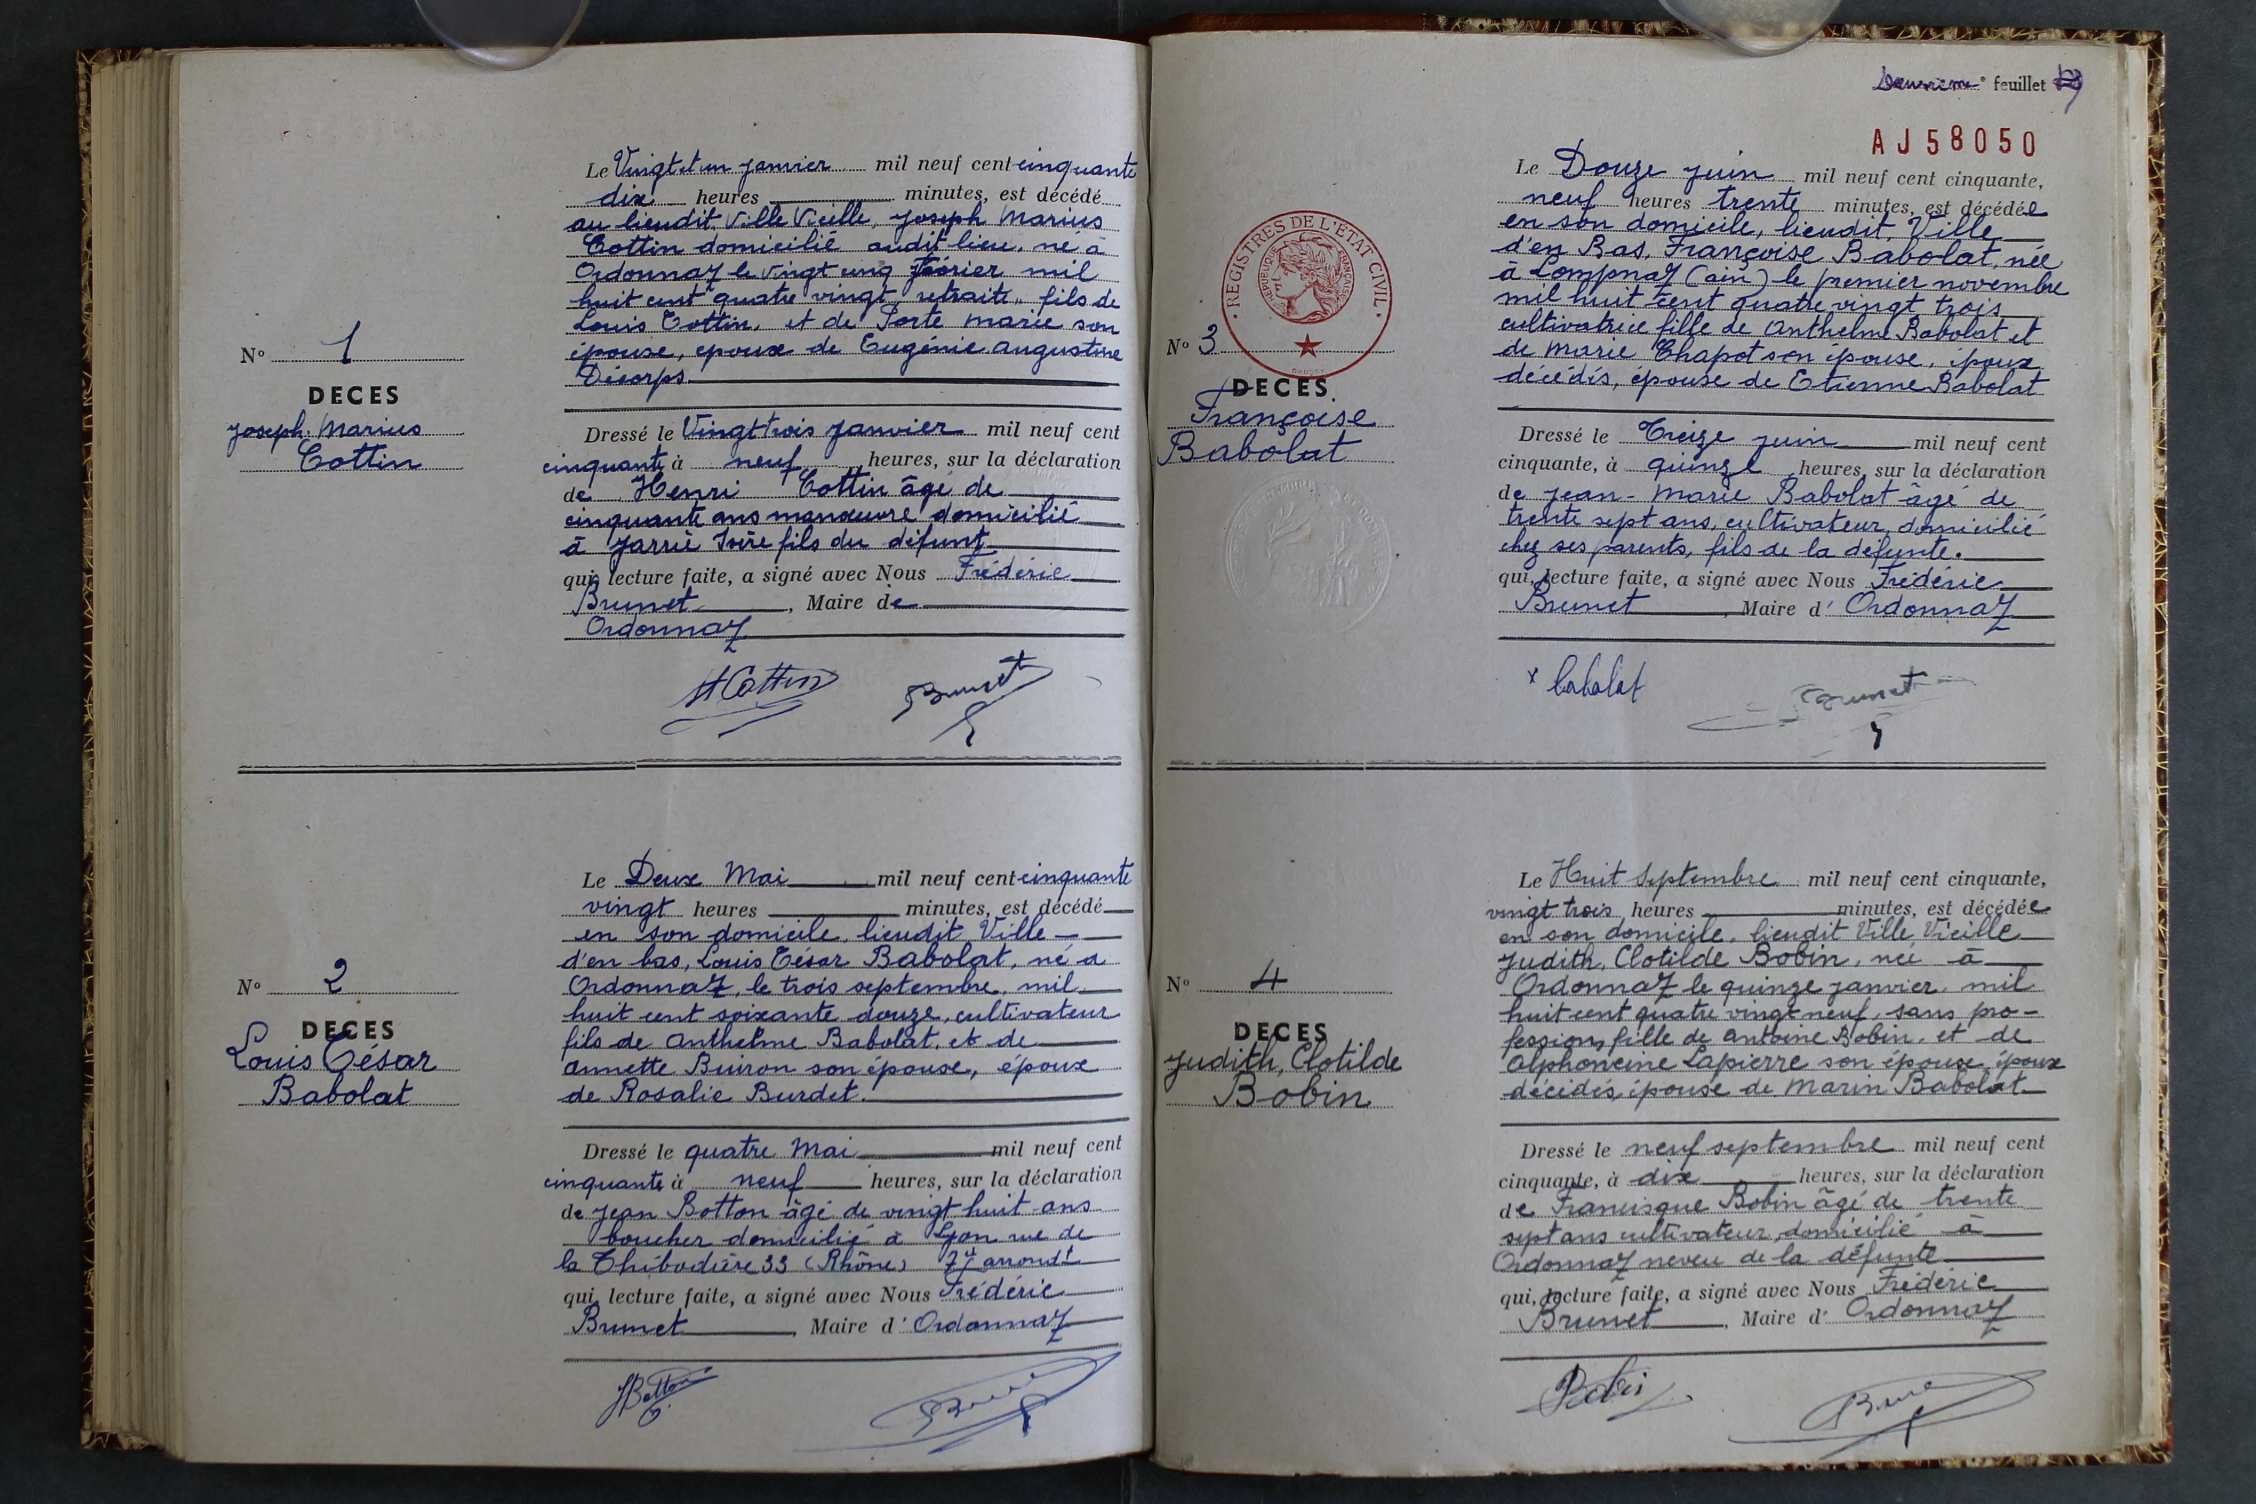 Le Vingt et un janvier mil neuf cent cinquante
dix heures minutes, est décédé
au lieudit, Ville Vieille, Joseph Marius
Cottin domicilié audit lieu, né à
Ordonnaz le vingt cinq février mil
huit cent quatre vingt, retraité, fils de
Louis Cottin, et de Porte Marie son
épouse, epoux de Eugénie Augustine
Décorps
N° 1
DECES
Joseph. Marius
Cottin
Dressé le Vingt trois janvier mil neuf cent
cinquante à neuf heures, sur la déclaration
de Henri Cottin âgé de
cinquante ans manœuvre domicilié
à Jarrie Isère fils du défunt
qui, lecture faite, a signé avec Nous Frédéric
Brunet, Maire de
Ordonnaz
H Cottin Brunet
Le Deux Mai mil neuf cent cinquante
vingt heures minutes, est décédé
en son domicile, lieudit Ville
d'en bas, Louis César Babolat, né a
Ordonnaz, le trois septembre, mil
huit cent soixante douze, cultivateur
fils de Anthelme Babolat, et de
Annette Buiron son épouse, époux
de Rosalie Burdet.
N° 2
DECES
Louis César
Babolat
Dressé le quatre Mai mil neuf cent
cinquante à neuf heures, sur la déclaration
de Jean Botton âgé de vingt huit ans
boucher domicilié à Lyon rue de
la Thibodière 33 (Rhône) 7e arrondt
qui, lecture faite, a signé avec Nous Frédéric
Brunet, Maire d' Ordonnaz
JBotton
Deuxième feuillet
AJ58050
Le Douze juin mil neuf cent cinquante,
neuf heures trente minutes, est décédée
en son domicile, lieudit, Ville
d'en Bas, Françoise Babolat, née
à Lompnaz (Ain) le premier novembre
mil huit cent quatre vingt trois
cultivatrice fille de Anthelme Babolat et
de Marie Chapot son épouse, époux
décédés, épouse de Etienne Babolat
REGISTRES DE L'ETAT CIVIL
REPUBLIQUE FRANÇAISE
N° 3
DECES.
Françoise
Babolat
Dressé le Treize juin mil neuf cent
cinquante, à quinze heures, sur la déclaration
de Jean-Marie Babolat âgé de
trente sept ans, cultivateur, domicilié
chez ses parents, fils de la défunte.
qui, lecture faite, a signé avec Nous Frédéric
Brunet, Maire d' Ordonnaz
x babolat Brunet
Le Huit Septembre mil neuf cent cinquante,
vingt trois heures minutes, est décédée
en son domicile, lieudit Ville Vieille
Judith, Clotilde Bobin, née à
Ordonnaz le quinze janvier, mil
huit cent quatre vingt neuf, sans pro-
fession, fille de Antoine Bobin, et de
Alphoncine Lapierre son épouse époux
décédés, épouse de Marin Babolat
N° 4
DECES
Judith, Clotilde
Bobin
Dressé le neuf septembre mil neuf cent
cinquante, à dix heures, sur la déclaration
de Francisque Bobin âgé de trente
sept ans cultivateur, domicilié à
Ordonnaz neveu de la défunte
qui, lecture faite, a signé avec Nous Frédéric
Brunet, Maire d' Ordonnaz
Bobin